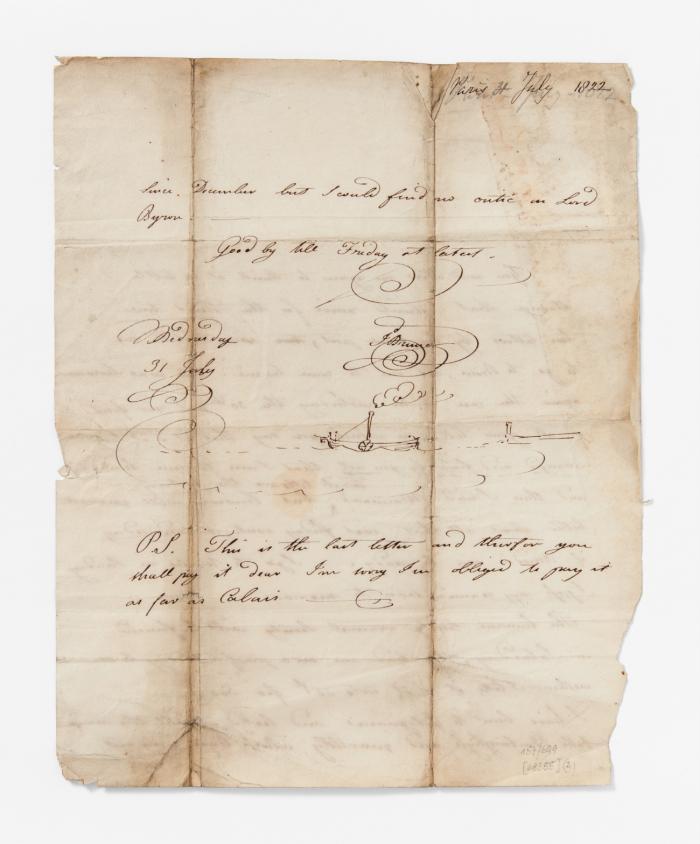 Paris 31 July 1822
since December but I could find no critic on Lord
Byron
Good by till Friday at latest.
Wednesday
31 July
P.S. This is the last letter and therfor you
shall pay it dear I'm sorry I'm obliged to pay it
as far as Calais